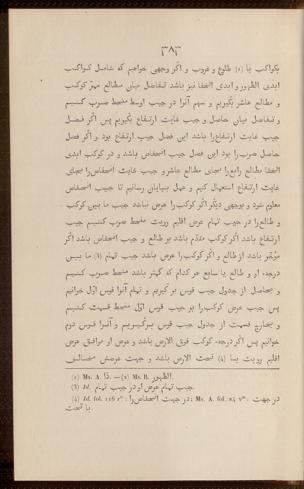 ۳۸۳
بکواکب با (۱) طلوع و غروب و اگر وجهی خواهیم که شامل کواکب
ابدی الظهور و ابدی الخفا نیز باشد تفاضل میان مطالع ممر کوکب
و مطالع عاشر بگیریم و سهم آنرا در جیب اوسط منحط ضرب کنیم
و تفاضل میان حاصل و جیب غایت ارتفاع بگیریم پس اگر فضل
جیب غایت ارتفاع را باشد این فضل جیب ارتفاع بود و اگر فضل
حاصل ضرب را بود این فضل جیب انخفاض باشد و در کوکب ابدی
الخفا مطالع رابع را بجای مطالع عاشر و جیب غایت انخفاض را بجای
غایت ارتفاع استعمال کنیم و عمل بپایان رسانیم تا جیب انخفاض
معلوم شود و بوجهی دیگر اگر کوکب را عرض نباشد جیب ما بین کوکب
و طالع را در جیب تمام عرض اقلیم رویت منحط ضرب کنیم جیب
ارتفاع باشد اگر کوکب مقدّم باشد بر طالع و جیب انخفاض باشد اگر
مؤخّر باشد از طالع و اگر کوکب را عرض باشد جیب تمام (۳) ما بین
درجه او و طالع یا سابع هر کدام که کمتر باشد منحط ضرب کنیم
و بحاصل از جدول جیب قوس بر گیریم و تمام آنرا قوس اوّل خوانیم
پس جیب عرض کوکب را بر جیب قوس اوّل منحط قسمت کنیم
و بخارج قسمت از جدول جیب قوس برگیریم و آنرا قوس دوم
خوانیم پس اگر درجه کوکب فوق الارض باشد و عرض او موافق عرض
اقلیم رویت بسا (۴) تحت الارض باشد و جهت عرضش مخالف
(1) Ms. A. تا. — (2) Ms. B. الظهور.
(3) Id. جیب تمام عرض او در جیب تمام.
(4) Id. fol. 116 rº: در جهت انخفاض را; Ms. A. fol. 24 vº: در جهت
یا تحت